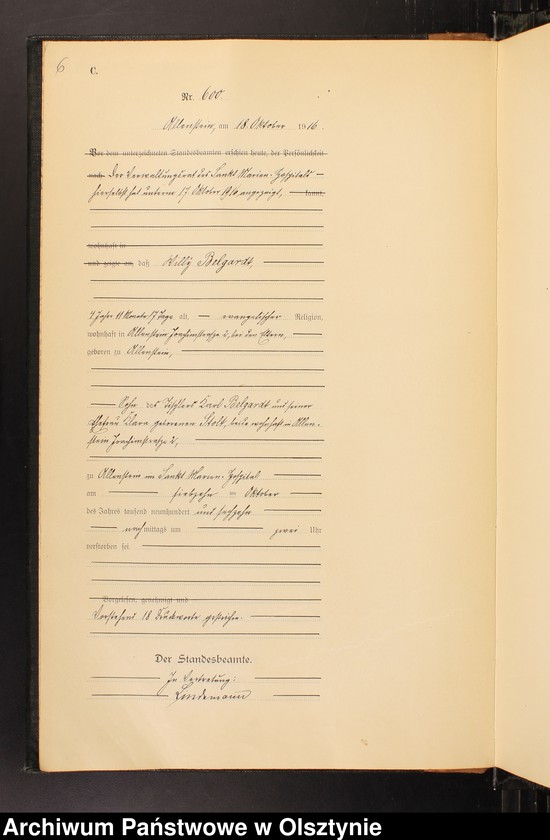 6
C.
Nr. 600
Allenstein, am 18. Oktober 1916.
Vor dem unterzeichneten Standesbeamten erschien heute, der Persönlichkeit
nach Der Verwaltungsrat des Sankt Marien-Hospitals
hierselbst hat unterm 17. Oktober 1916 angezeigt, kannt,
wohnhaft in
und zeigte an, daß Willy Belgardt,
4 Jahr 11 Monate 17 Tage alt, evangelischer Religion,
wohnhaft in Allenstein Joachimstraße 2, bei den Eltern,
geboren zu Allenstein,
Sohn des Tischlers Karl Belgardt und seiner
Ehefrau Klara geborenen Stolt, beide wohnhaft in Allen-
stein Joachimstraße 2,
zu Allenstein im Sankt Marien-Hospital
am siebzehn ten Oktober
des Jahres tausend neunhundert und sechzehn
nachmittags um zwei Uhr
verstorben sei.
Vorgelesen, genehmigt und
Vorstehend 18 Druckworte gestrichen.
Der Standesbeamte.
In Vertretung:
Lindemann
Archiwum Państwowe w Olsztynie